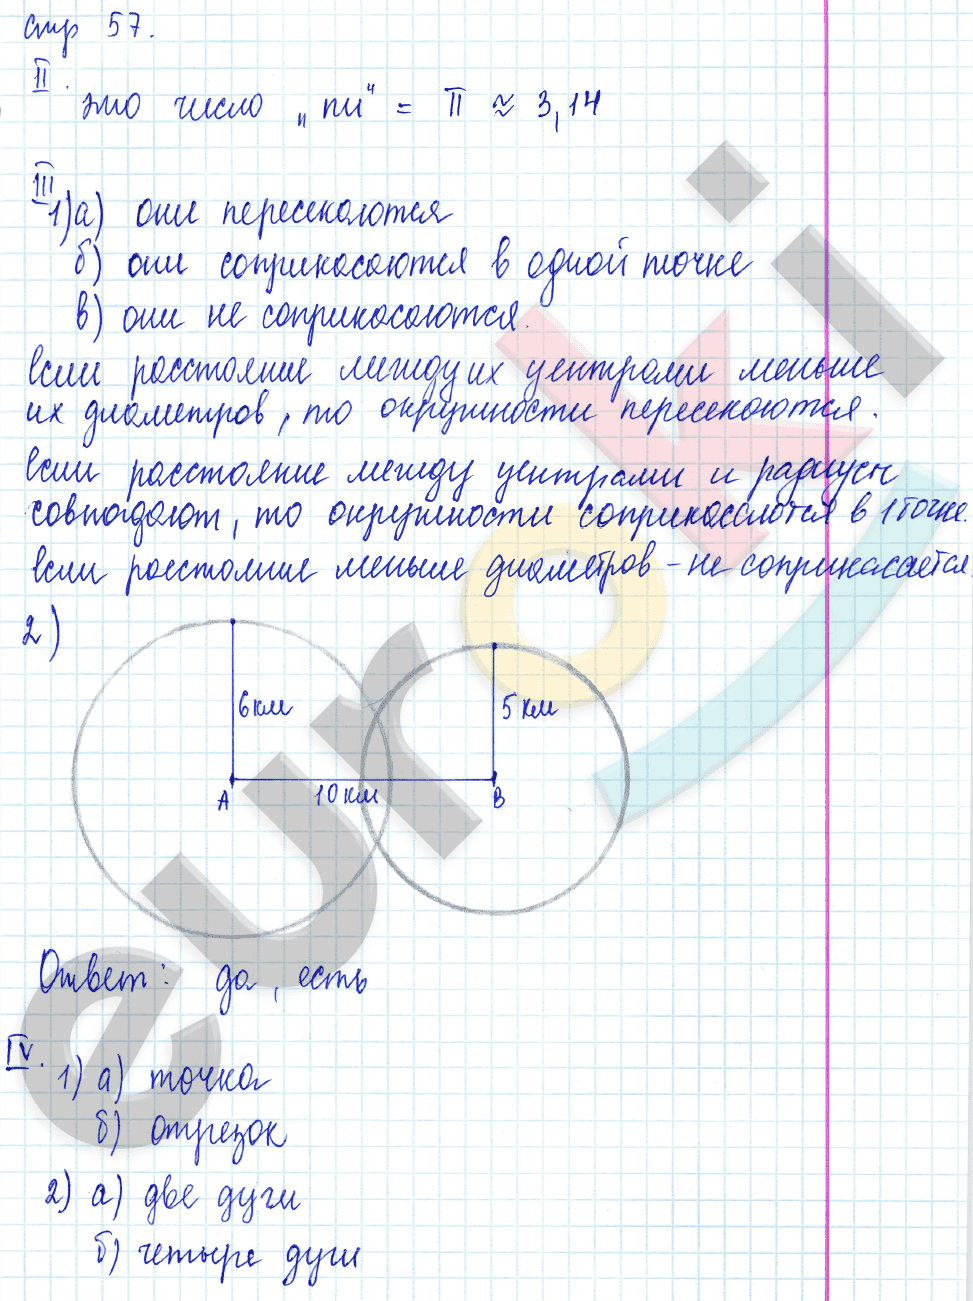 стр 57.
II.
это число „пи“ = П ≈ 3,14
III
1) а) они пересекаются
б) они соприкасаются в одной точке
в) они не соприкасаются.
если расстояние между их центрами меньше
их диаметров, то окружности пересекаются.
если расстояние между центрами и радиусы
совпадают, то окружности соприкасаются в 1 точке.
если расстояние меньше диаметров - не соприкасается.
2)
6 км
5 км
A
10 км
B
Ответ: да, есть
IV.
1) а) точка
б) отрезок
2) а) две дуги
б) четыре дуги
euroki